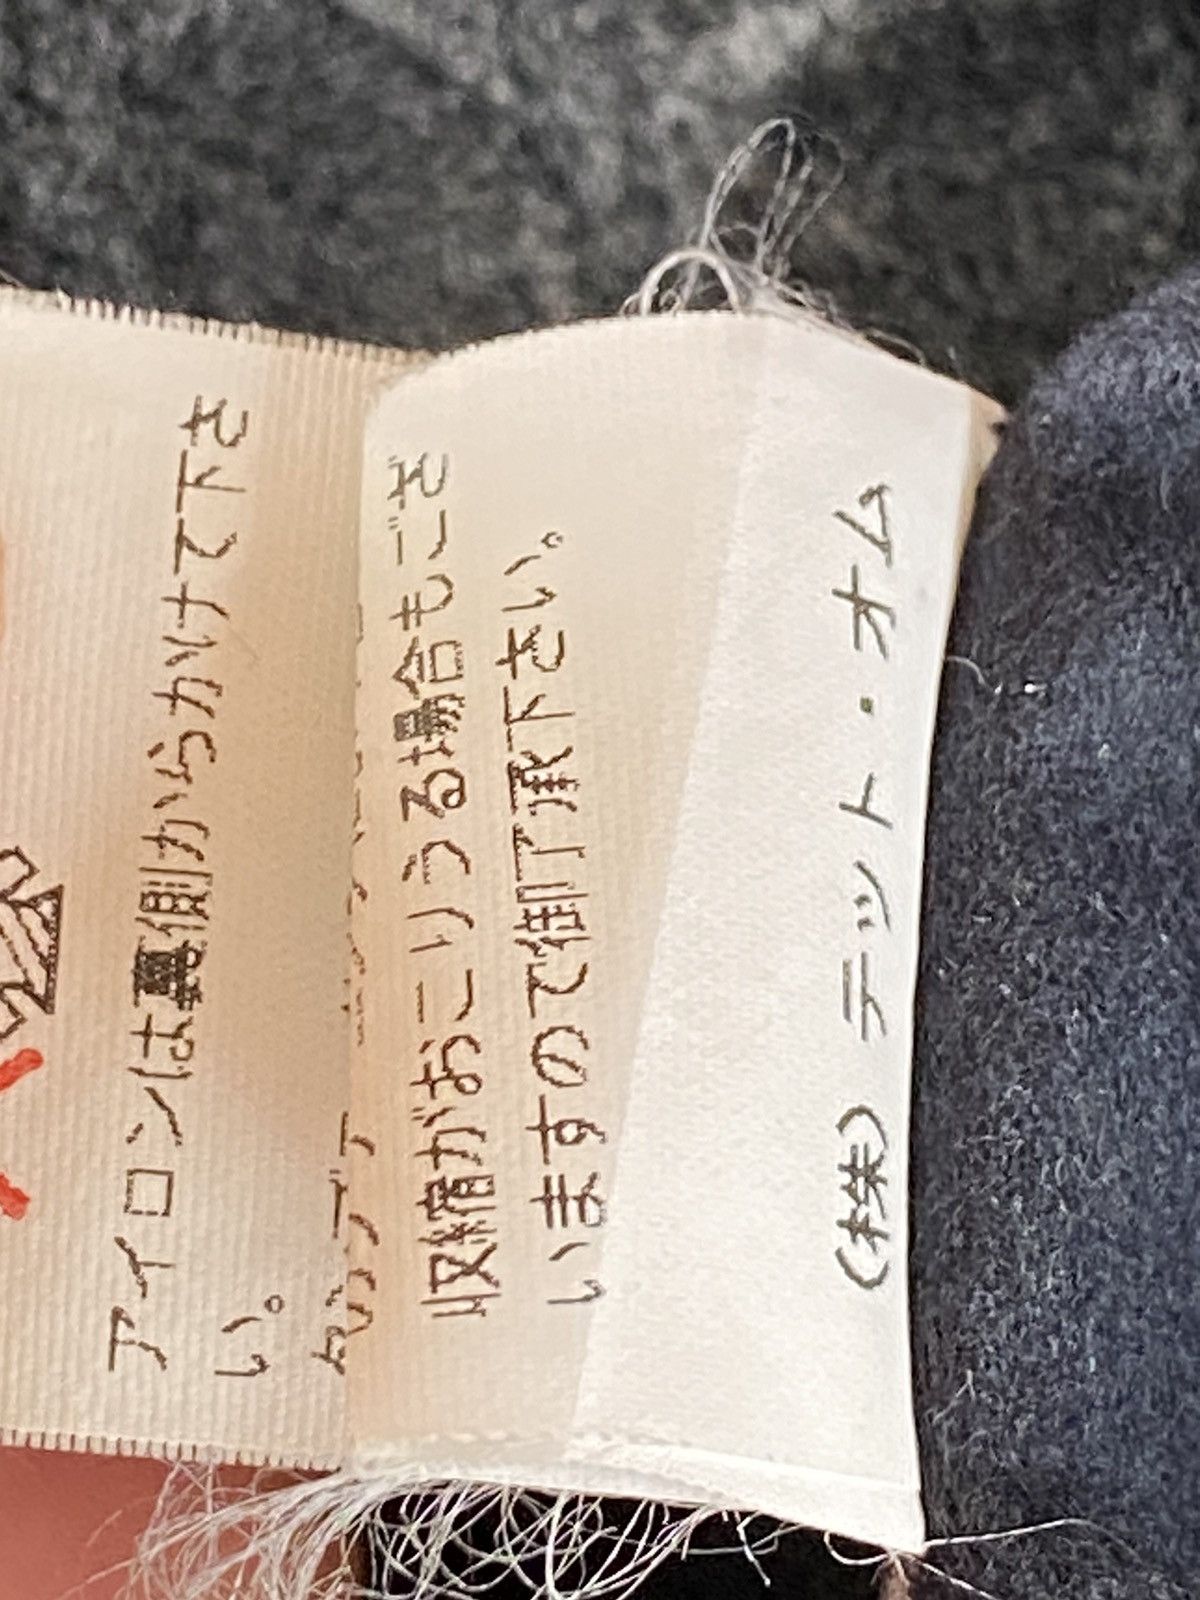 アイロンは裏側からかけて下さ
い。
収縮がおこりうる場合もござ
いますので御了承下さい。
(株) テット・オム